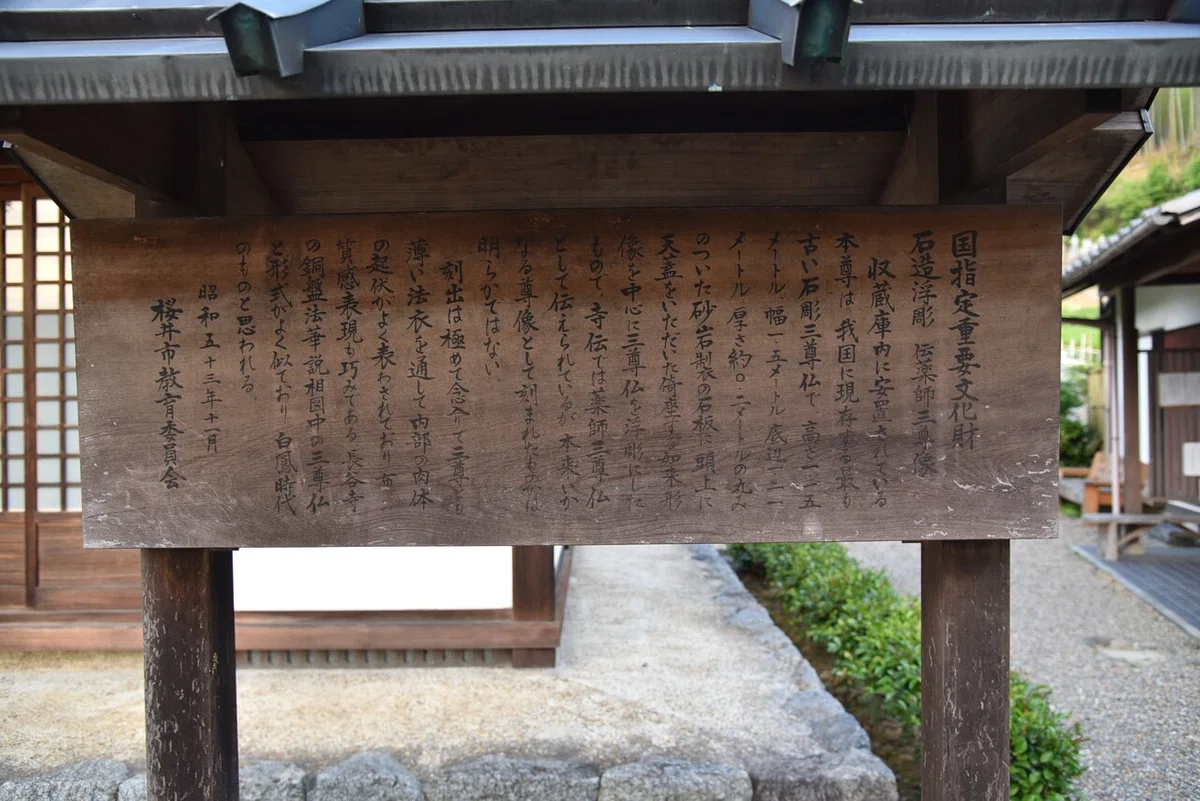 国指定重要文化財
石造浮彫 伝薬師三尊像
収蔵庫内に安置されている
本尊は、我国に現存する最も
古い石彫三尊仏で 高さ一・一五
メートル 幅一・五メートル 底辺二・一
メートル 厚さ約〇・二メートルの丸み
のついた砂岩製の石板に頭上に
天蓋をいただいた倚座する如来形
像を中心に三尊仏を浮彫にした
もので、寺伝では薬師三尊仏
として伝えられているが 本来いか
なる尊像として刻まれたものかは
明らかではない。
刻出は極めて念入りで三尊とも
薄い法衣を通して内部の肉体
の起伏がよく表わされており 布
質感表現も巧みである 長谷寺
の銅盤法華説相図中の三尊仏
と形式がよく似ており 白鳳時代
のものと思われる
昭和五十三年十一月
桜井市教育委員会